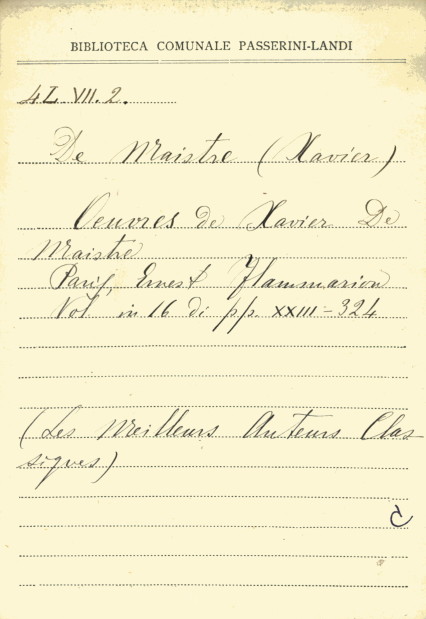 BIBLIOTECA COMUNALE PASSERINI-LANDI
4L. VII. 2.
De Maistre (Xavier)
Oeuvres de Xavier De
Maistre
Paris, Ernest Flammarion
Vol in 16 di pp. XXIII-324
(Les Meilleurs Auteurs Clas-
siques)
C